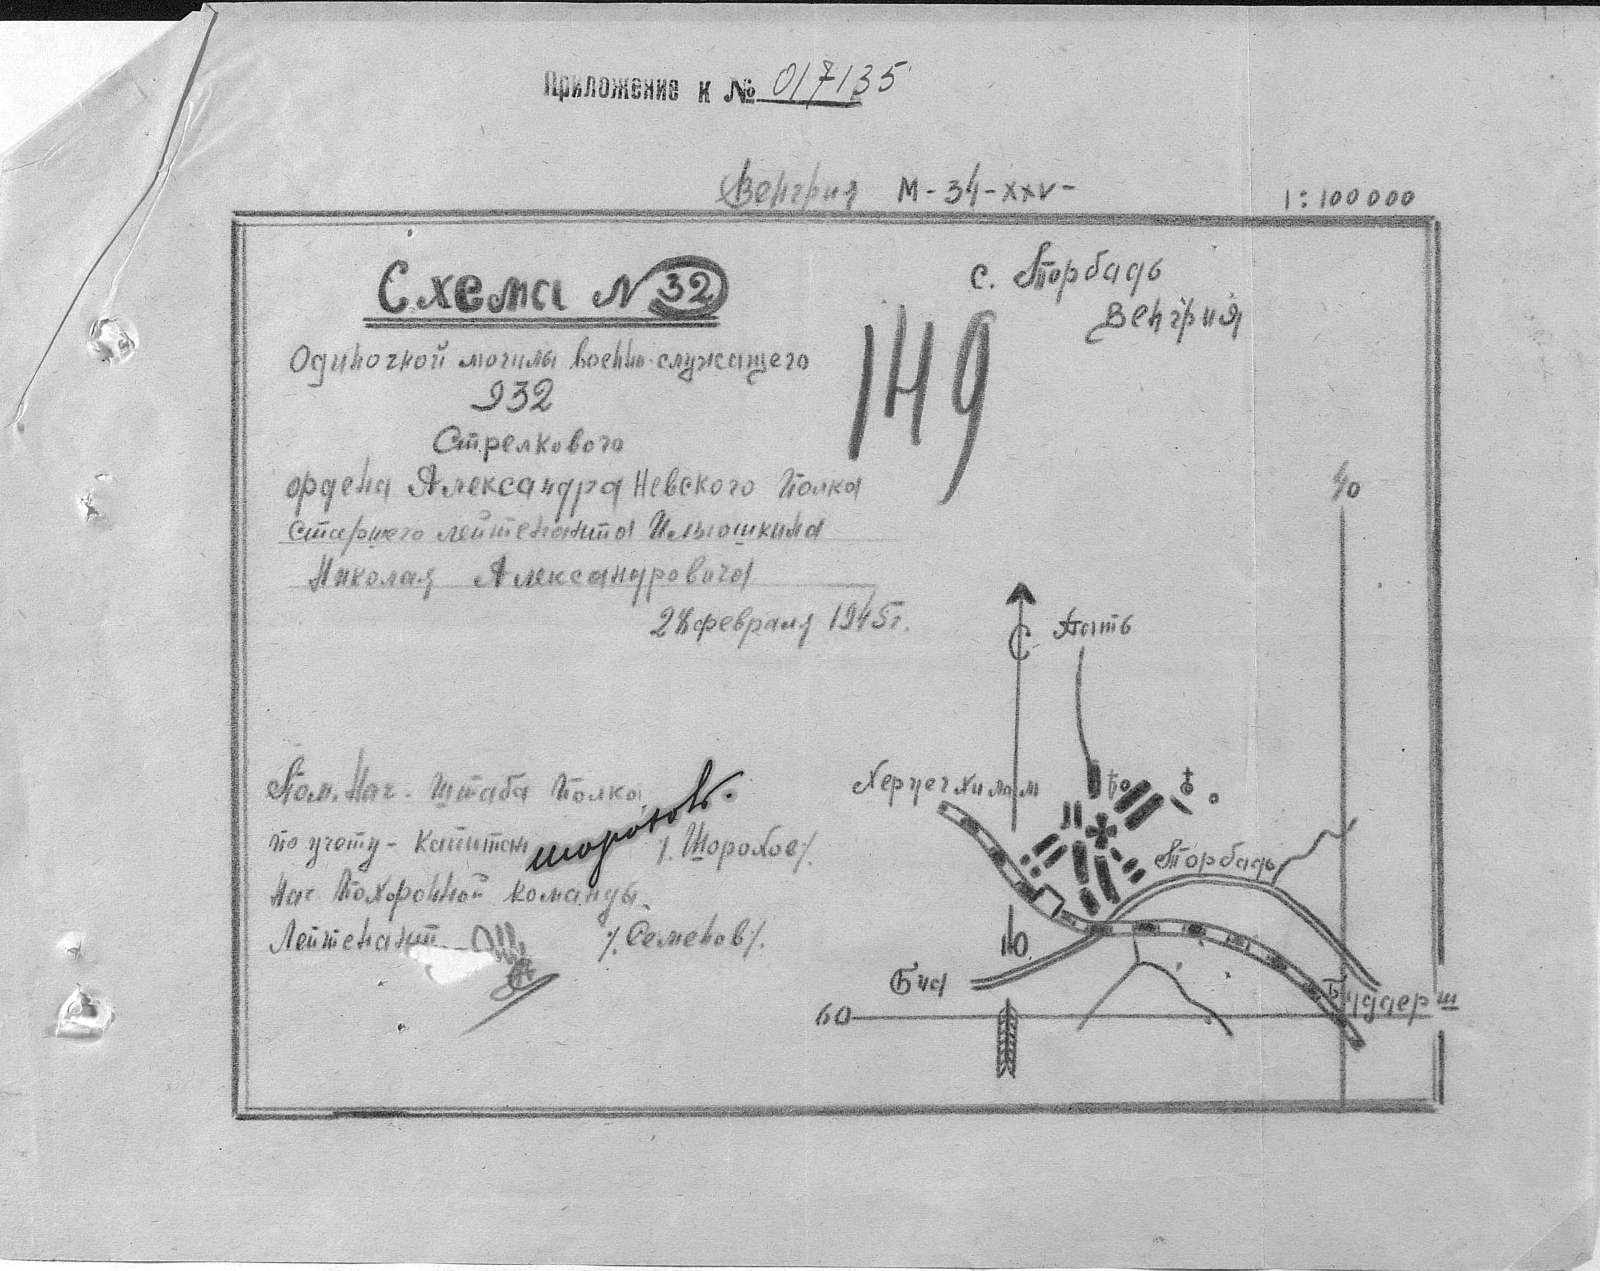 Приложение к № 017135
Венгрия М-34-XXV-
1:100000
Схема N 32
с. Торбадь
Венгрия
149
Одиночной могилы военно-служащего
932
Стрелкового
ордена Александра Невского полка
старшего лейтенанта Ильюшкина
Николая Александровича
28 февраля 1945г.
40
С
Пать
Херцегхилом
Торбадь
Ю.
Биа
Буддерш
60
Пом. Нач. Штаба полка
по учету - капитан Шорохов. /. Шорохов/.
Нач. Похоронной команды.
Лейтенант /.Семенов/.